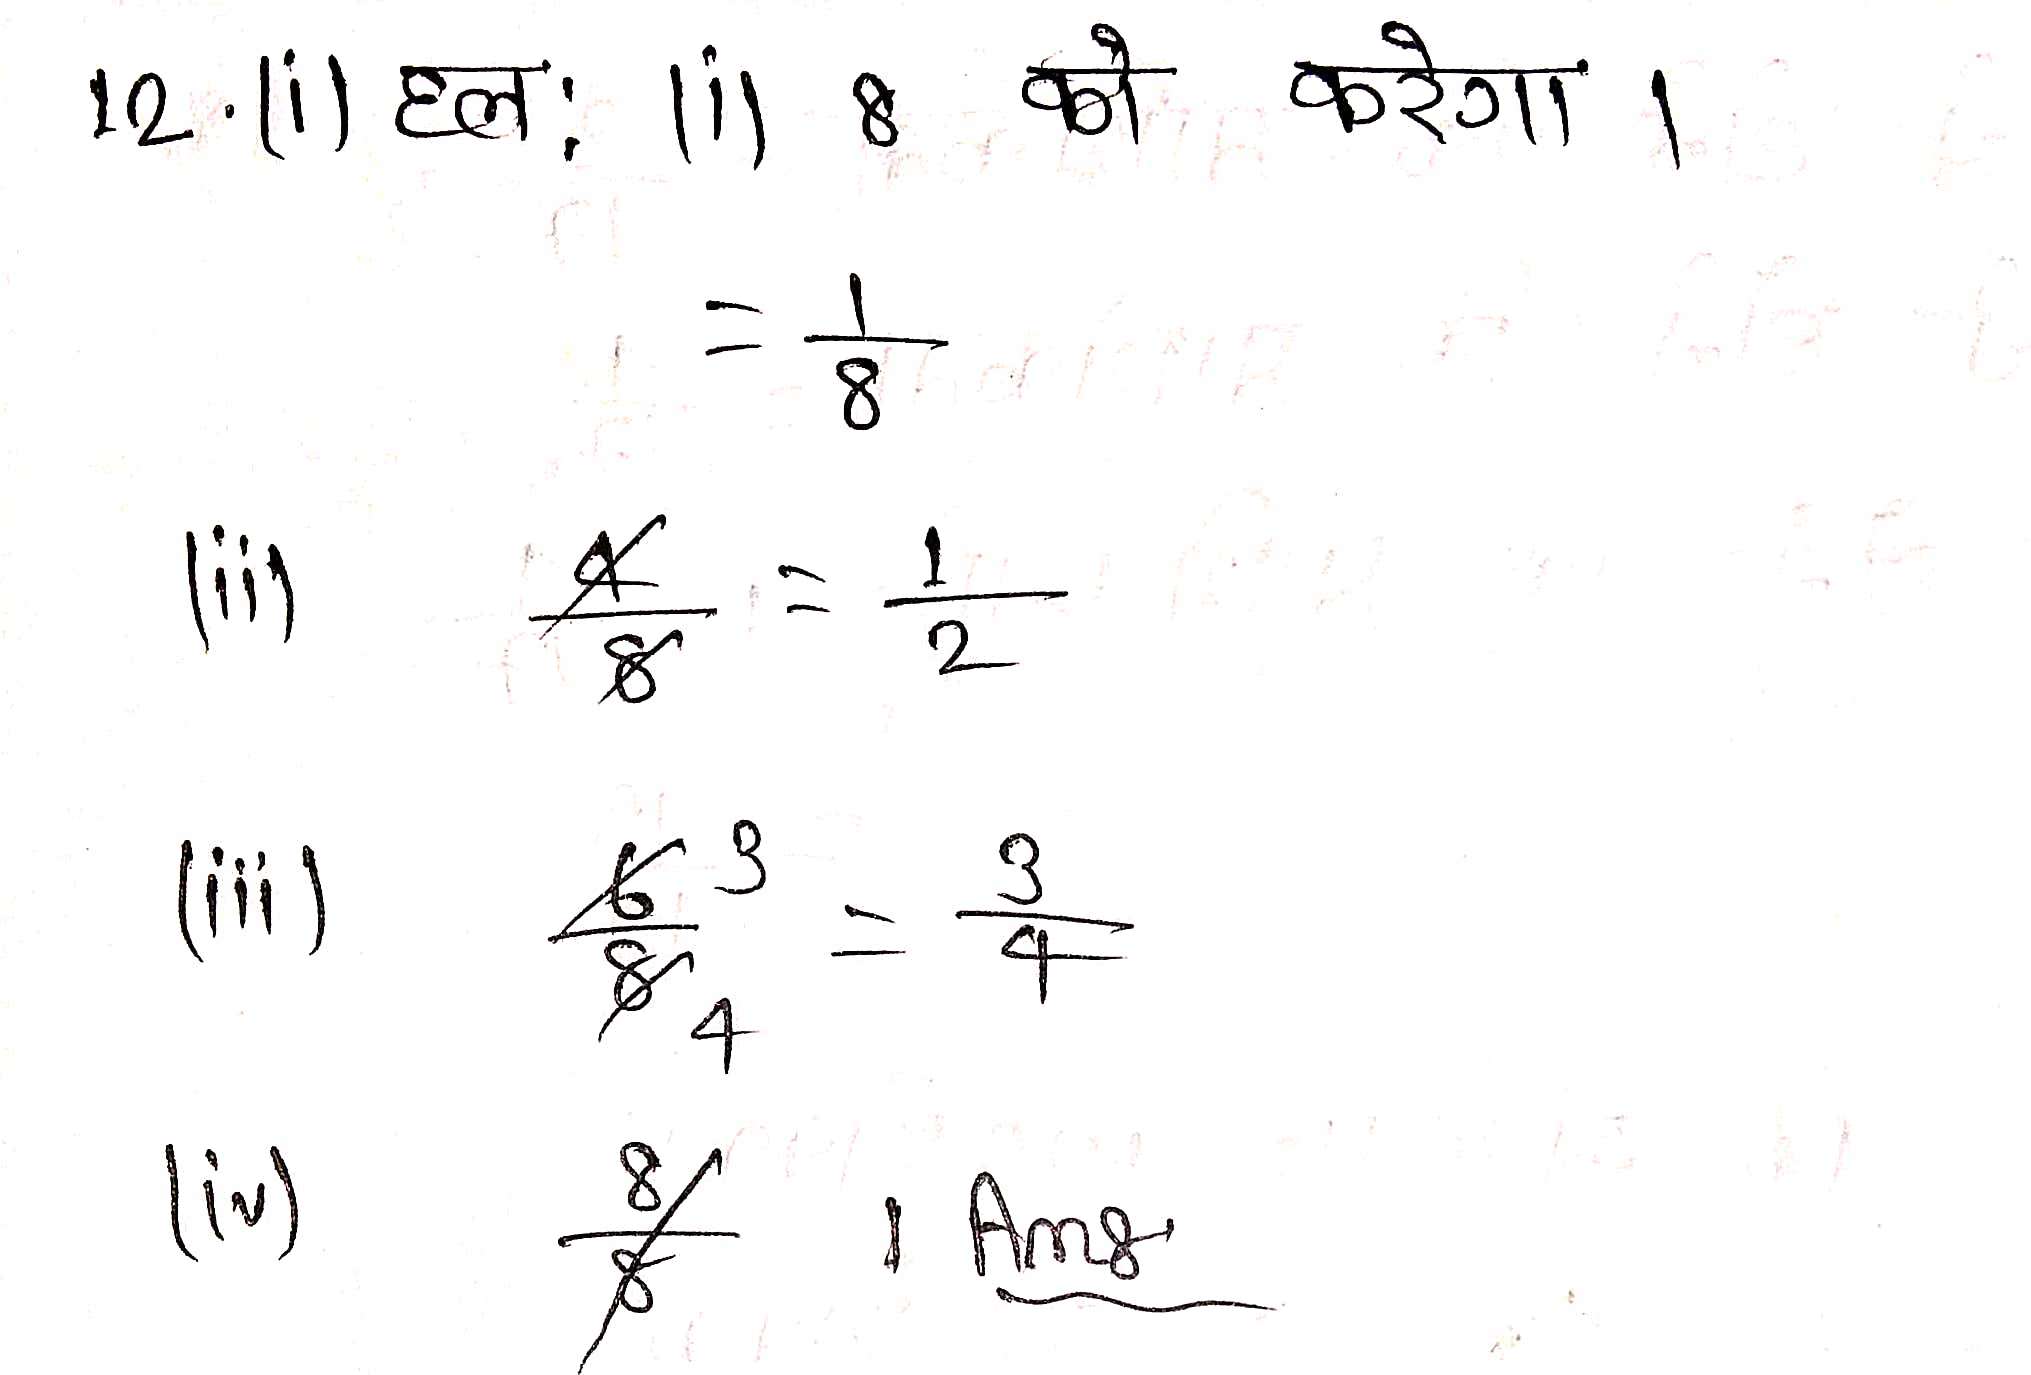 12. (i) हल: (i) 8 को करेगा।
= 1/8
(ii) 4/8 = 1/2
(iii) 6/8 3 4 = 3/4
(iv) 8/8 1 Ans